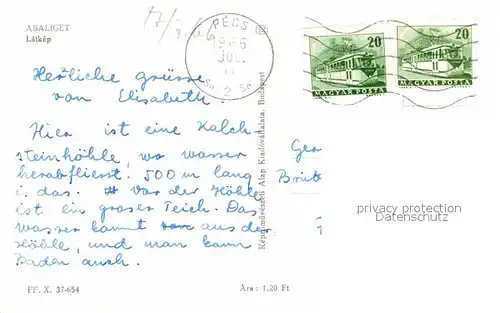 ABALIGET
Látkép
PÉCS
1966
JUL.
20
20
MAGYAR POSTA
MAGYAR POSTA
Herzliche grüsse
von Elisabeth
Hier ist eine Kalch
steinhöhle, wo wasser
herabfliesst. 500 m lang
is das. Vor der Höhle
ist ein groser Teich. Das
wasser kommt aus der
Höhle, und man kann
Baden auch.
Képzőművészeti Alap Kiadóvállalata, Budapest
privacy protection
Datenschutz
FF. X. 37-654
Ára: 1,20 Ft